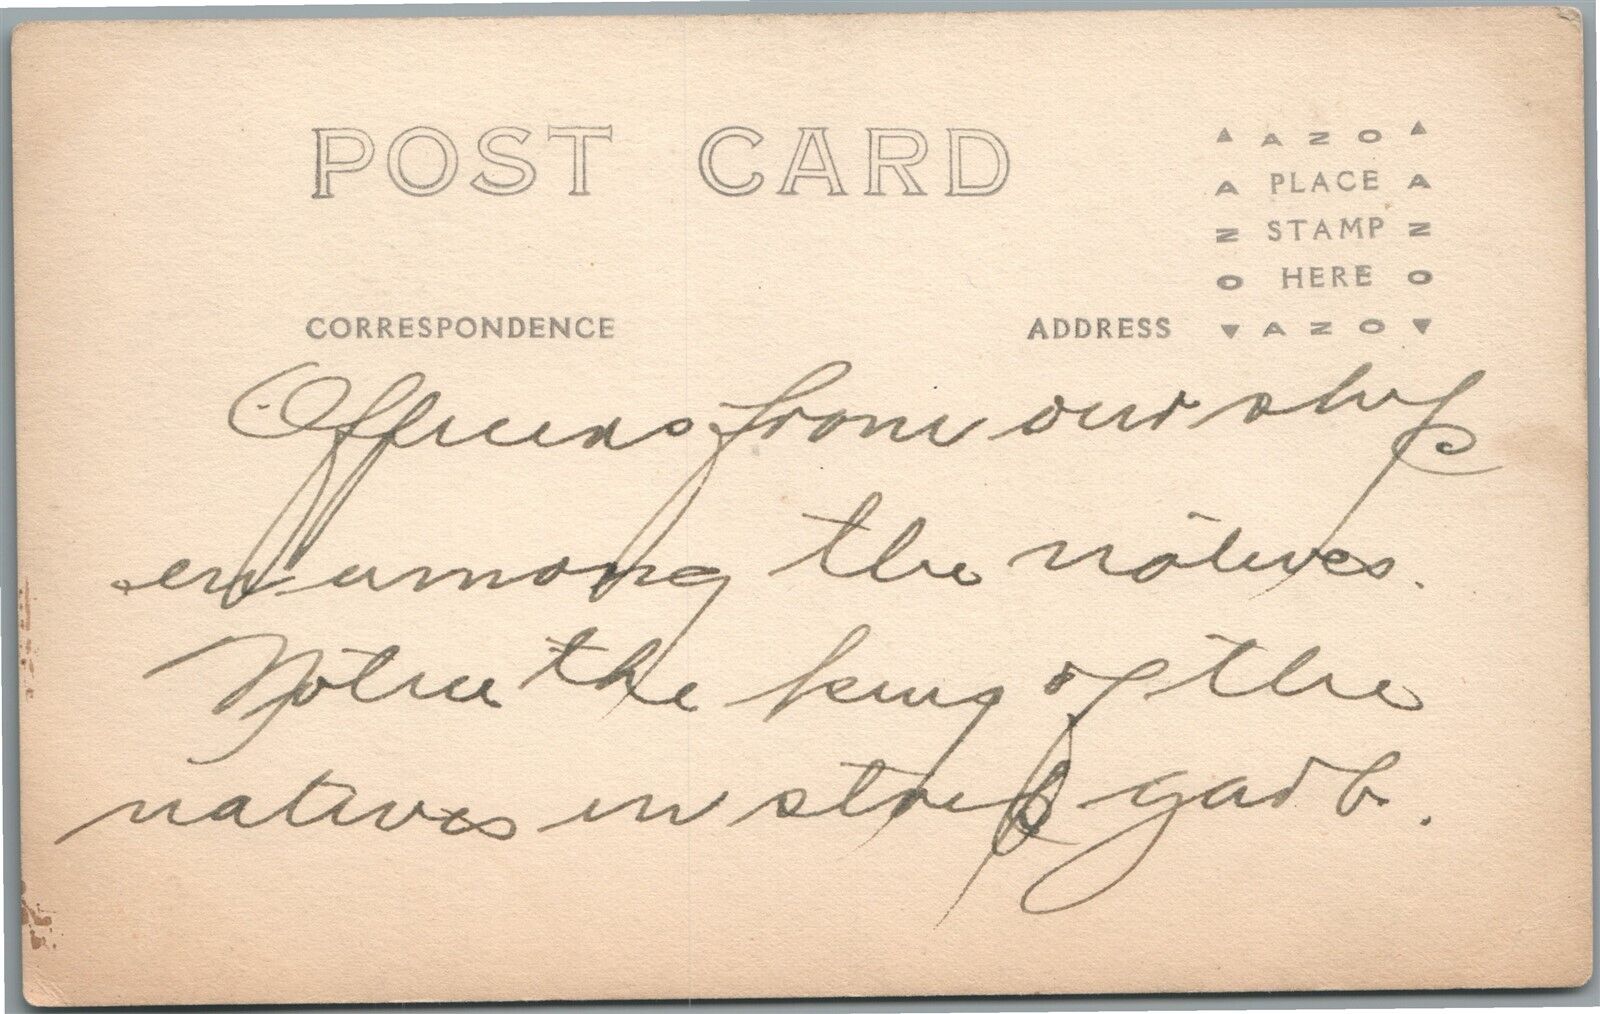 POST CARD
AZO
A PLACE A
N STAMP N
O HERE O
AZO
CORRESPONDENCE
ADDRESS
Officers from our ship
among the natives.
Notice the king of the
natives in garb.